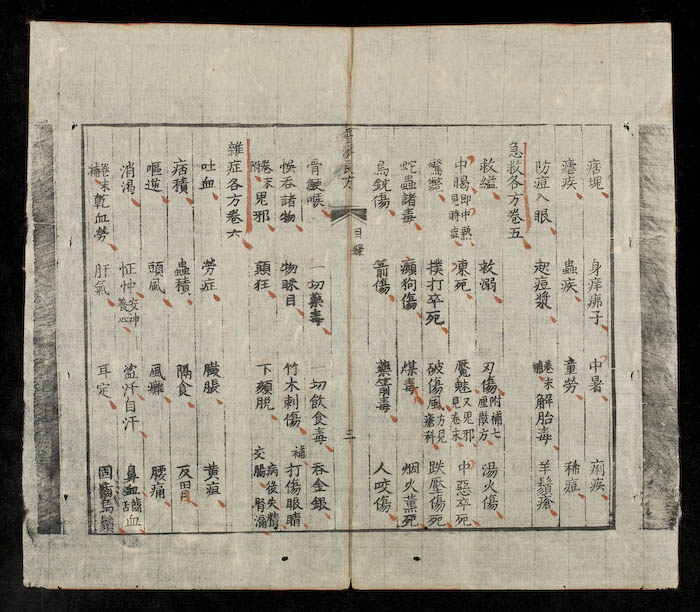 痞塊 身痒痱子 中暑 痢疾
瘧疾 蟲疾 童勞 稀痘
防痘入眼 起痘漿 卷末補解胎毒 羊鬚瘡
急救各方卷五
救縊 救溺 刃傷附補七厘散方 湯火傷
中暍即中熱見時症 凍死 魘魅又鬼邪見卷末 中惡卒死
驚斃 撲打卒死 破傷風方見瘡科 跌壓傷死
蛇蟲諸毒 癲狗傷 煤毒 烟火薰死
鳥銃傷 箭傷 藥箭毒 人咬傷
普濟良方 目錄 三
骨鯁喉 一切藥毒 一切飲食毒 吞金銀
悞吞諸物 物眯目 竹木刺傷 補打傷眼睛
卷末附鬼邪 顛狂 下頦脫 病後失精 交腸 腎漏
雜症各方卷六
吐血 勞症 臌脹 黄疸
痞積 蟲積 隔食
嘔逆 頭風 風癱 腰痛
消渴 怔忡安神養心 盗汗自汗 鼻血齒舌血
卷末補乾血勞 肝氣 耳定 固齒烏鬚